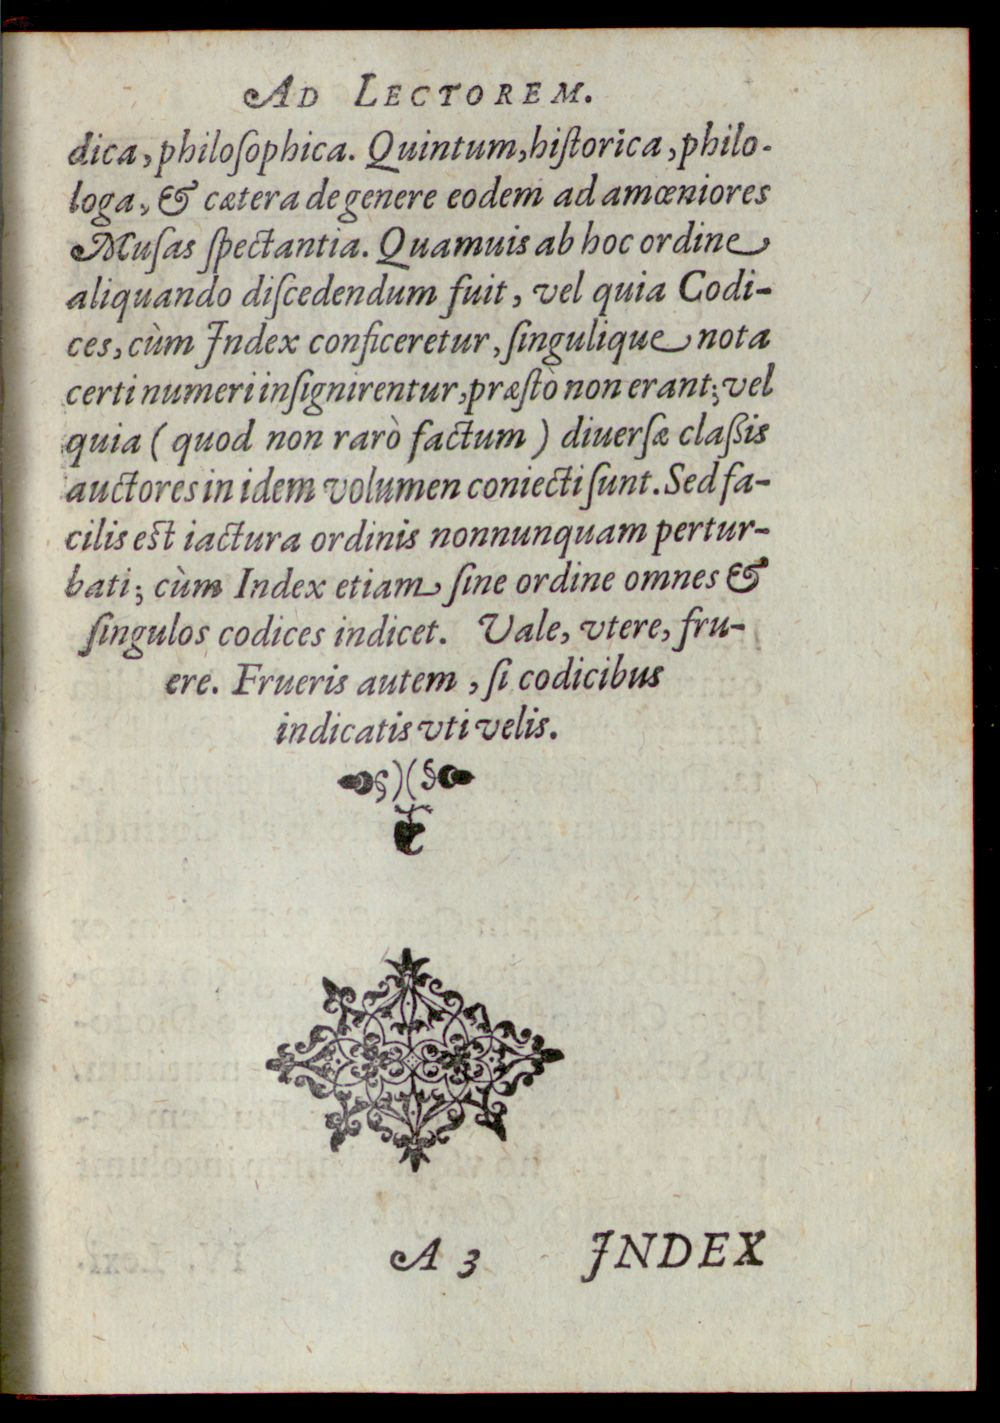 AD LECTOREM.
dica, philoſophica. Quintum, hiſtorica, philo-
loga, & cætera de genere eodem ad amœniores
Muſas ſpectantia. Quamuis ab hoc ordine
aliquando diſcedendum fuit, vel quia Codi-
ces, cùm Index conficeretur, ſingulique nota
certi numeri inſignirentur, præſtò non erant; vel
quia ( quod non rarò factum ) diuerſæ claßis
auctores in idem volumen coniecti ſunt. Sed fa-
cilis est iactura ordinis nonnunquam pertur-
bati; cùm Index etiam ſine ordine omnes &
ſingulos codices indicet. Vale, vtere, fru-
ere. Frueris autem, ſi codicibus
indicatis vti velis.
A 3 INDEX